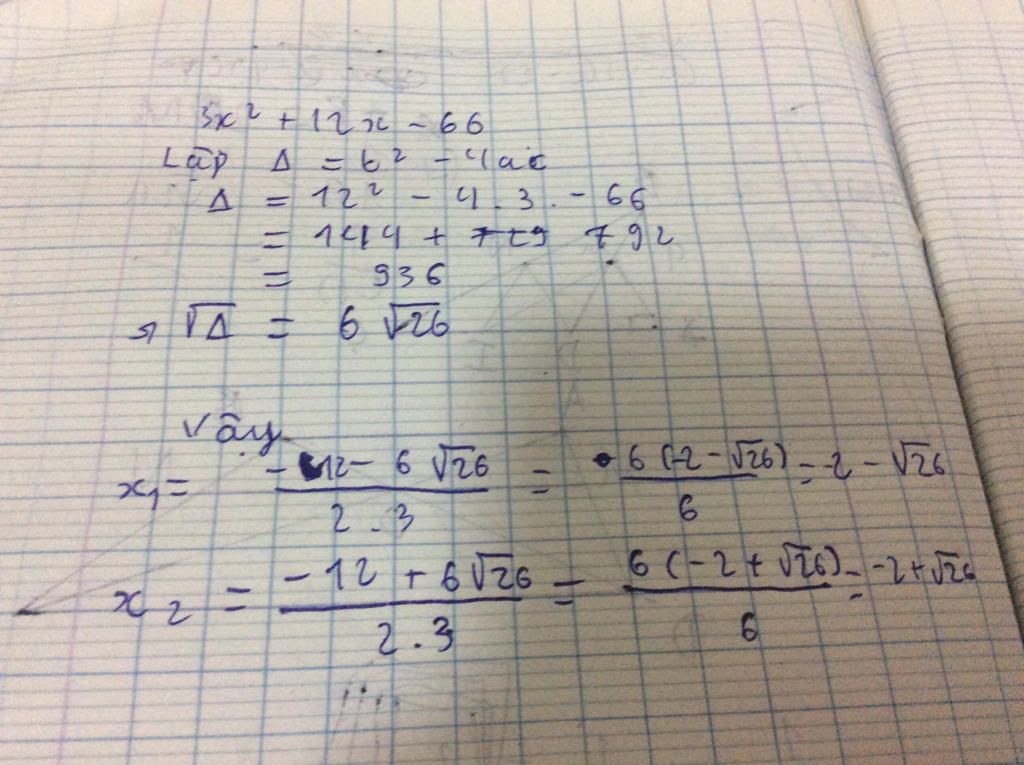 3x² + 12x - 66
Lập Δ = b² - 4ac
Δ = 12² - 4 . 3 . - 66
= 144 + 729 792
= 936
=> √Δ = 6 √26
Vậy
x₁ = (-12 - 6 √26) / (2 . 3) = 6 (-2 - √26) / 6 = -2 - √26
x₂ = (-12 + 6√26) / (2 . 3) = 6 (-2 + √26) / 6 = -2 + √26